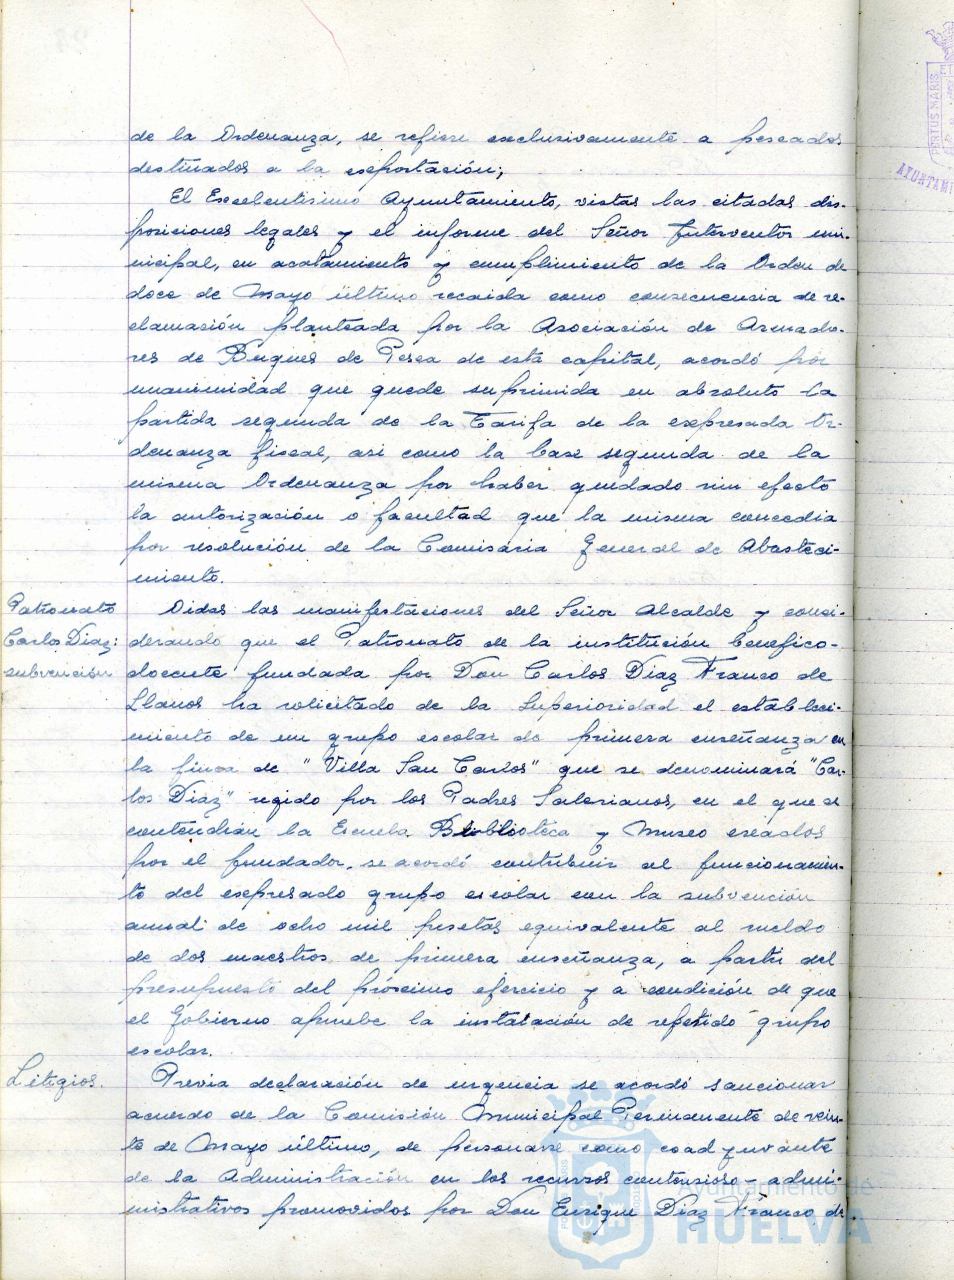 de la Ordenanza, se refiere exclusivamente a pescados
destinados a la exportación;
El Excelentísimo Ayuntamiento, vistas las citadas dis-
posiciones legales y el informe del Señor Interventor mu-
nicipal, en acatamiento y cumplimiento de la Orden de
doce de Mayo último recaida como consecuencia de re-
clamación planteada por la Asociación de Armado-
res de Buques de Pesca de esta capital, acordó por
unanimidad que quede suprimida en absoluto la
partida segunda de la Tarifa de la expresada Or-
denanza fiscal, asi como la base segunda de la
misma Ordenanza por haber quedado sin efecto
la autorización o facultad que la misma concedia
por resolución de la Comisaria General de Abasteci-
miento.
Patronato
Carlos Diaz:
subvención
Oidas las manifestaciones del Señor Alcalde y consi-
derando que el Patronato de la institución benefico-
docente fundada por Don Carlos Diaz Franco de
Llanos ha solicitado de la Superioridad el estableci-
miento de un grupo escolar de primera enseñanza en
la finca de "Villa San Carlos" que se denominará "Car-
los Diaz" regido por los Padres Salesianos, en el que se
contendian la Escuela Biblioteca y Museo creados
por el fundador, se acordó contribuir al funcionamien-
to del expresado grupo escolar con la subvención
anual de ocho mil pesetas equivalente al sueldo
de dos maestros de primera enseñanza, a partir del
presupuesto del próximo ejercicio y a condición de que
el Gobierno apruebe la instalación de repetido grupo
escolar.
Litigios.
Previa declaración de urgencia se acordó sancionar
acuerdo de la Comisión Municipal Permanente de vein-
te de Mayo último, de personarse como coadyuvante
de la Administración en los recursos contencioso-admi-
nistrativos promovidos por Don Enrique Diaz Franco de
Ayuntamiento de
HUELVA
PORTUS MARIS
AYUNTAMI